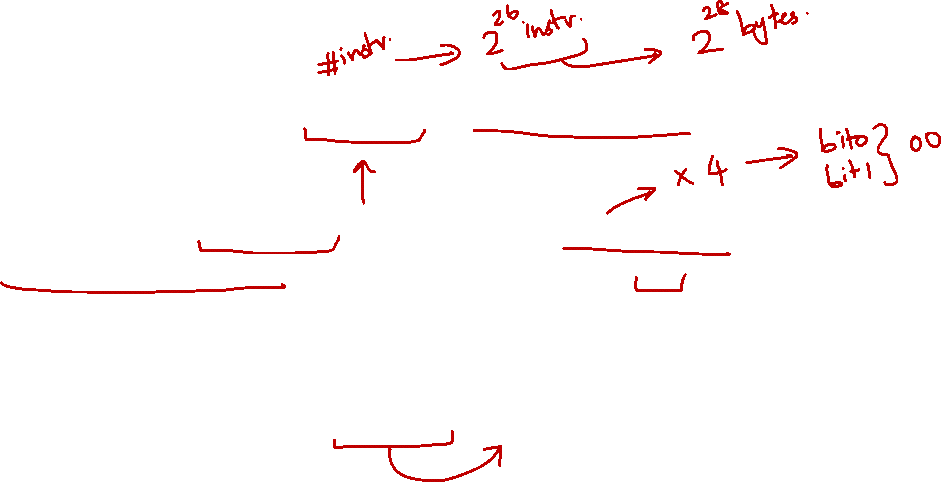 #instr. → 2^26 instr. → 2^28 bytes.
× 4 → bit0 } 00
bit1